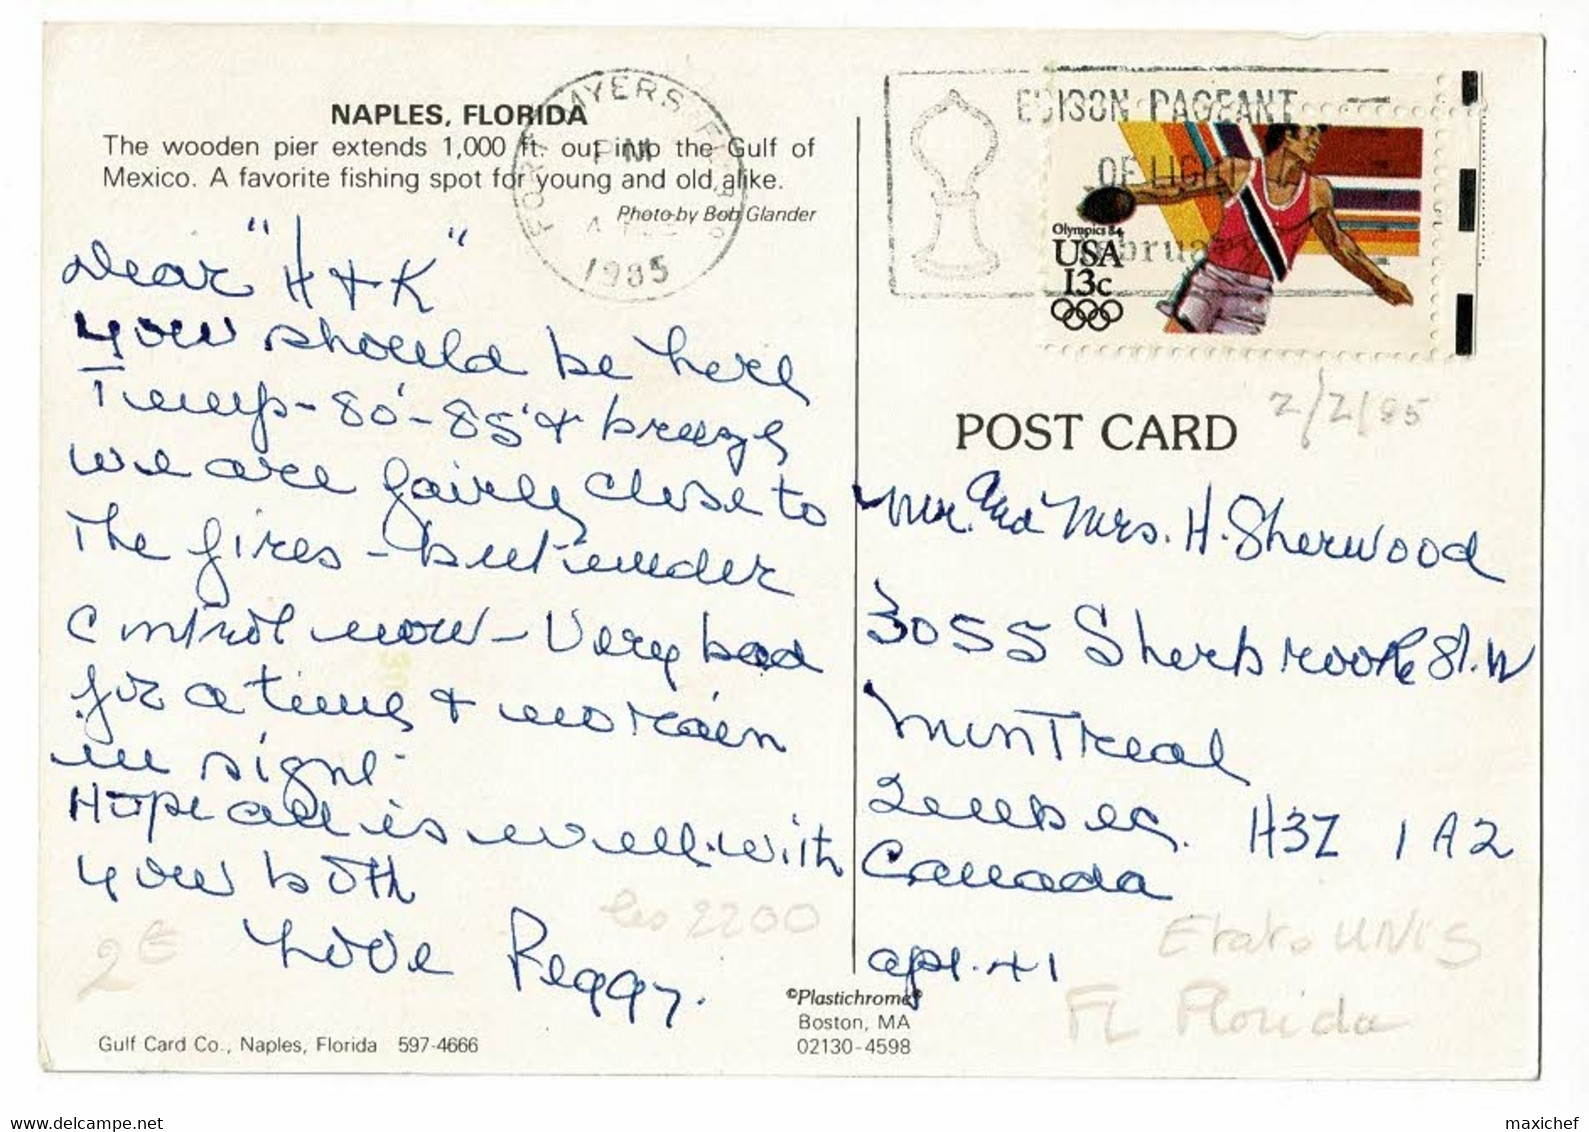 NAPLES, FLORIDA
The wooden pier extends 1,000 ft. out into the Gulf of
Mexico. A favorite fishing spot for young and old alike.
Photo by Bob Glander
FORT MYERS FL
PM
1985
Dear "H + K"
you should be here
Temp - 80' - 85' + breezy
we are fairly close to
the fires - but under
control now - Very bad
for a time & no rain
in sight -
Hope all is well with
you both
Love Peggy.
Gulf Card Co., Naples, Florida 597-4666
©Plastichrome®
Boston, MA
02130-4598
EDISON PAGEANT
OF LIGHT
February
Olympics 84
USA
13c
2/2/85
POST CARD
Mr. and Mrs. H. Sherwood
3055 Sherbrooke St. W
Montreal
Quebec. H3Z 1A2
Canada
apt. 41
Etats UNIS
FL Florida
2€
2200
maxichef